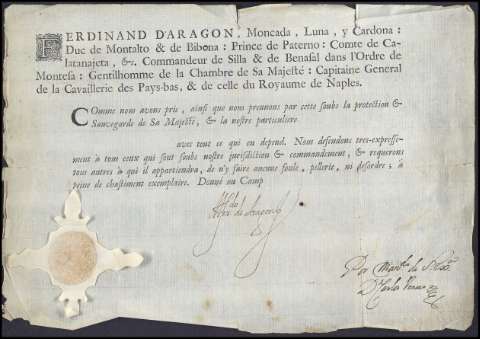 FERDINAND D'ARAGON, Moncada, Luna, y Cardona:
Duc de Montalto & de Bibona: Prince de Paterno: Comte de Ca-
latanajeta, &c. Commandeur de Silla & de Benasal dans l'Ordre de
Montesa: Gentilhomme de la Chambre de Sa Majesté: Capitaine General
de la Cavaillerie des Pays-bas, & de celle du Royaume de Naples.
COmme nous avons pris, ainsi que nous prenons par cette soubs la protection &
Sauvegarde de Sa Majesté, & la nostre particuliere
avec tout ce qui en depend. Nous defendons tres-expresse-
ment à tous ceux qui sont soubs nostre jurisdiction & commandement, & requerons
tous autres à qui il appartiendra, de n'y faire aucune foule, pillerie, ni desordre; à
peine de chastiment exemplaire. Donné au Camp
Por de